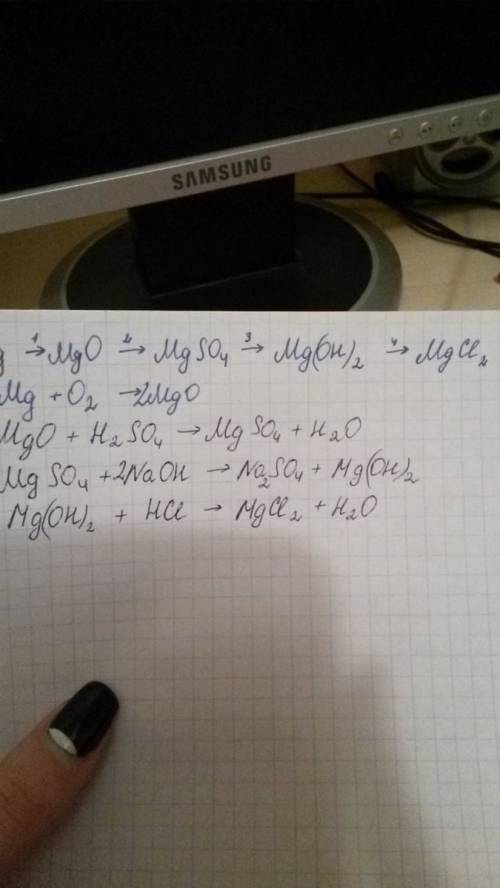 SAMSUNG
g →¹ MgO →² MgSO₄ →³ Mg(OH)₂ →⁴ MgCl₂
Mg + O₂ → 2MgO
MgO + H₂SO₄ → MgSO₄ + H₂O
MgSO₄ + 2NaOH → Na₂SO₄ + Mg(OH)₂
Mg(OH)₂ + HCl → MgCl₂ + H₂O